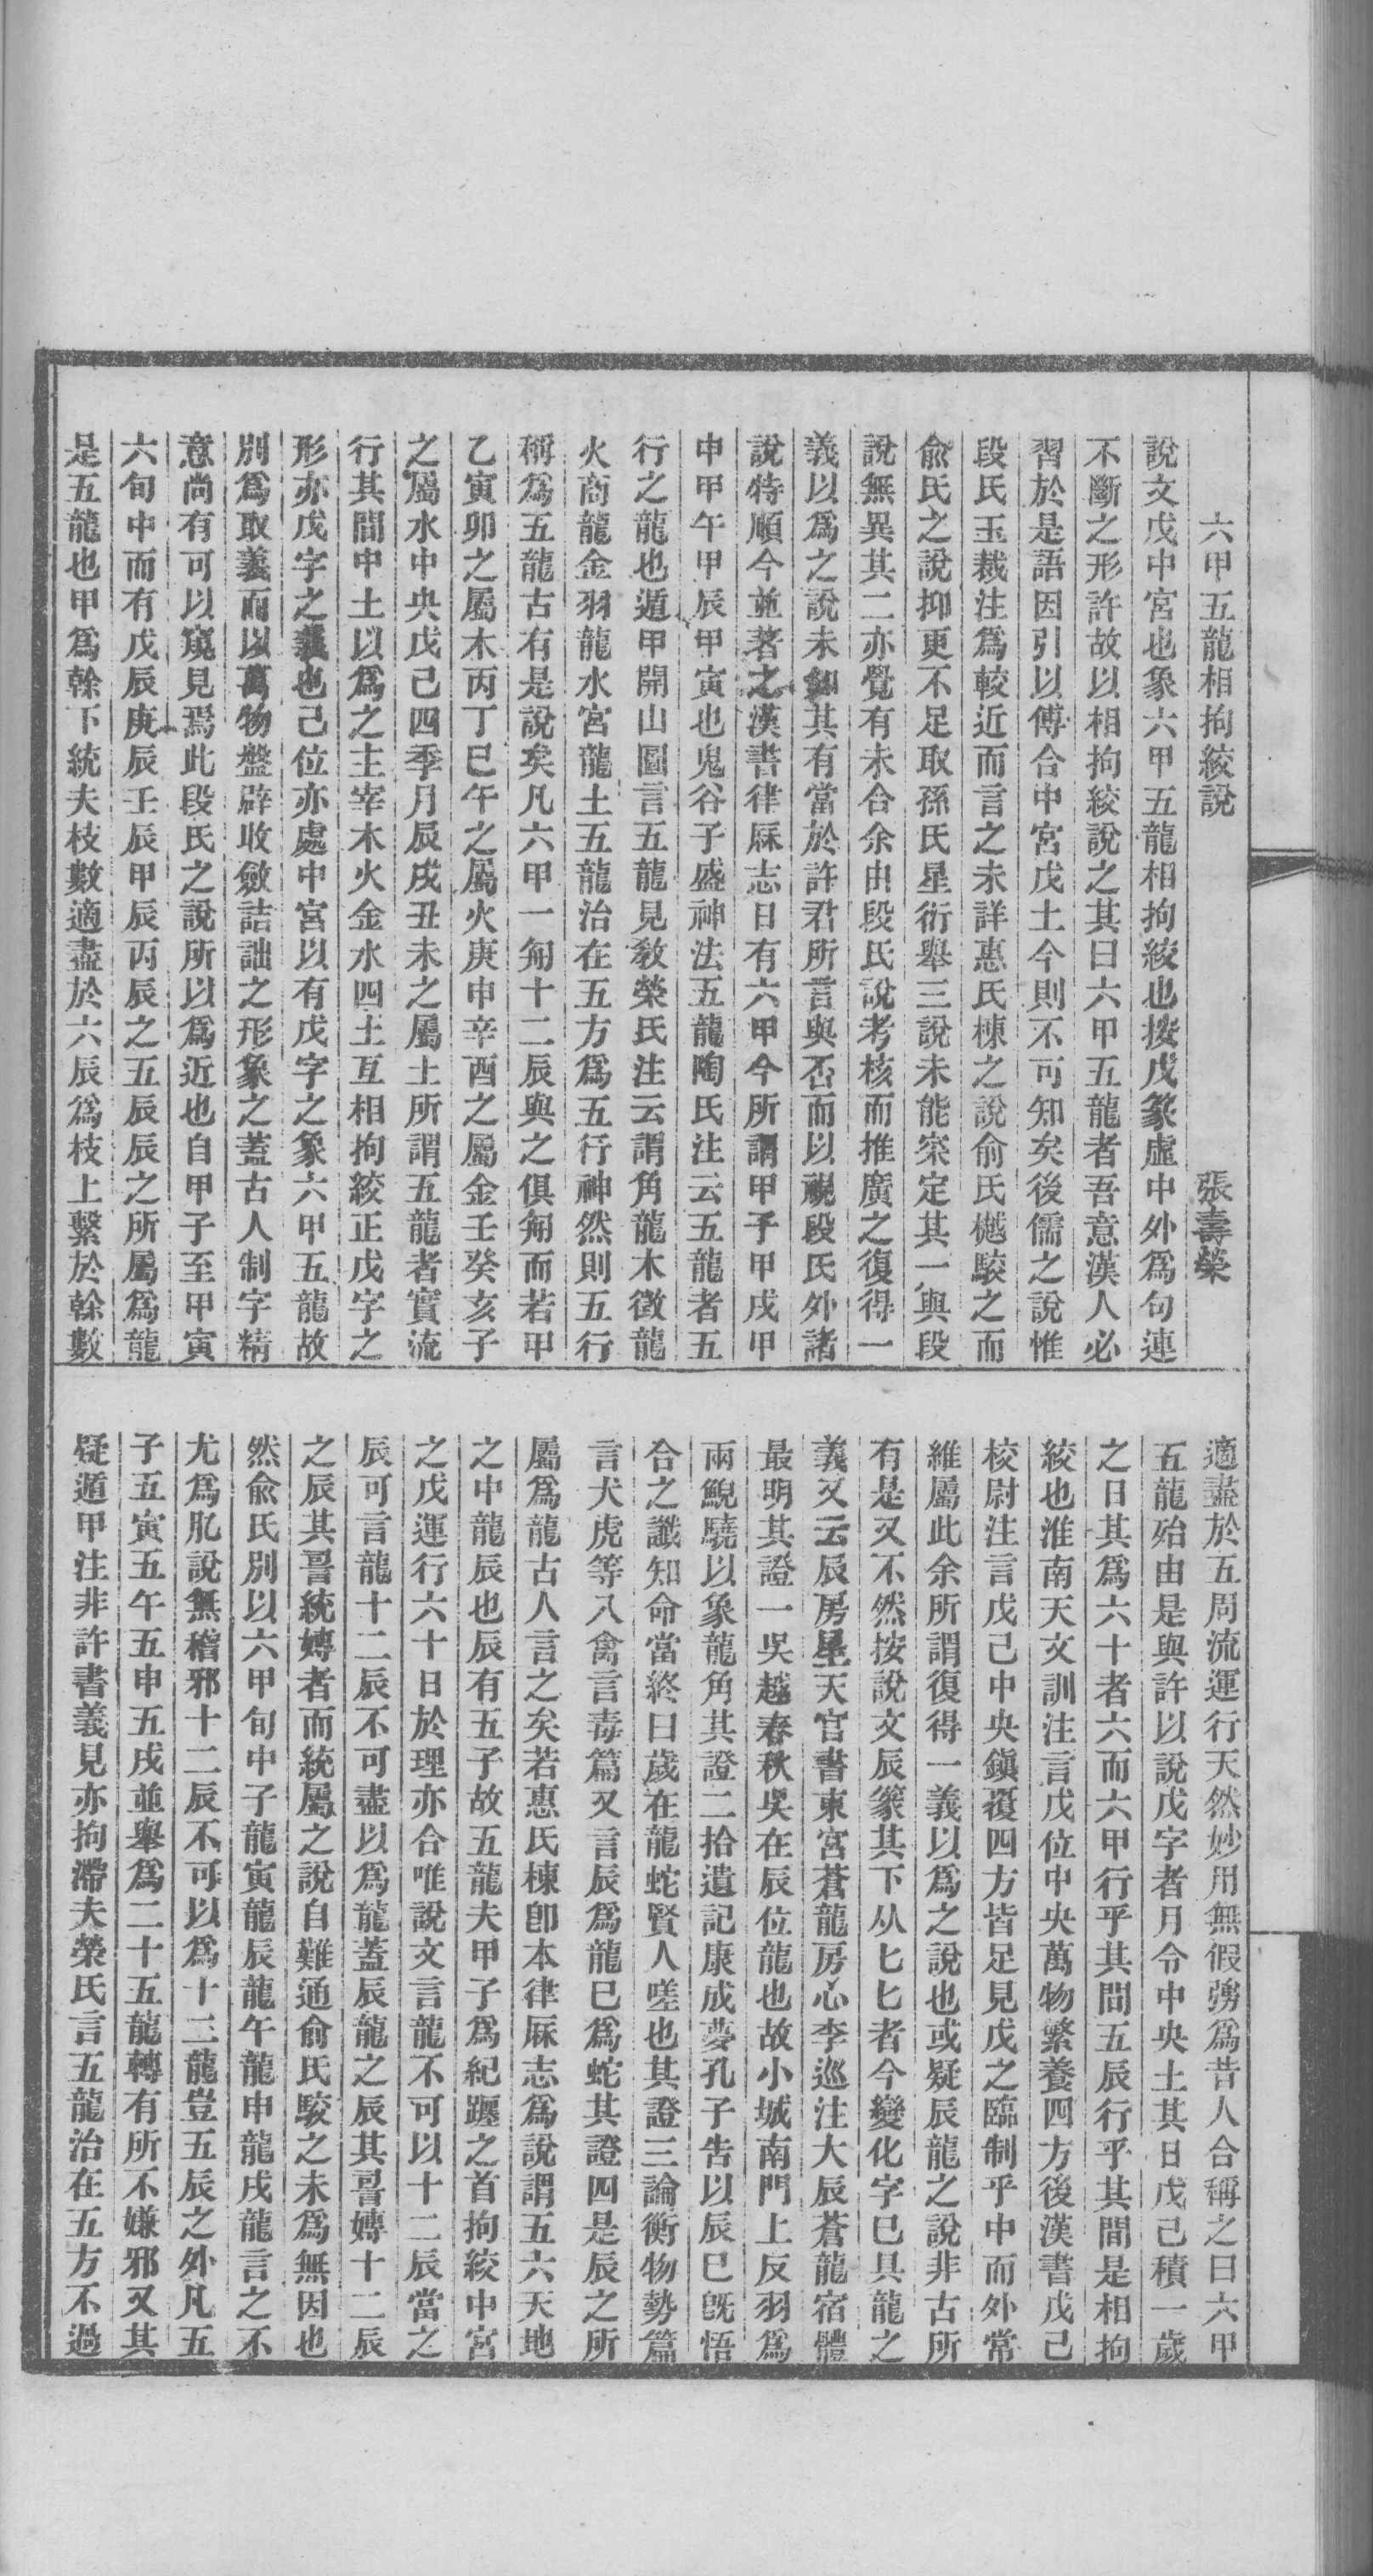 六甲五龍相拘絞說
張壽榮
說文戊中宮也象六甲五龍相拘絞也按戊篆虛中外為句連
不斷之形許故以相拘絞說之其曰六甲五龍者吾意漢人必
習於是語因引以傅合中宮戊土今則不可知矣後儒之說惟
段氏玉裁注為較近而言之未詳惠氏棟之說俞氏樾駮之而
俞氏之說抑更不足取孫氏星衍舉三說未能宷定其一與段
說無異其二亦覺有未合余由段氏說考核而推廣之復得一
義以為之說未知其有當於許君所言與否而以視段氏外諸
說特順今並著之漢書律厤志日有六甲今所謂甲子甲戌甲
申甲午甲辰甲寅也鬼谷子盛神法五龍陶氏注云五龍者五
行之龍也遁甲開山圖言五龍見教榮氏注云謂角龍木徵龍
火商龍金羽龍水宮龍土五龍治在五方為五行神然則五行
稱為五龍古有是說矣凡六甲一匊十二辰與之俱匊而若甲
乙寅卯之屬木丙丁巳午之屬火庚申辛酉之屬金壬癸亥子
之屬水中央戊己四季月辰戌丑未之屬土所謂五龍者實流
行其間中土以為之主宰木火金水四土互相拘絞正戊字之
形亦戊字之義也己位亦處中宮以有戊字之象六甲五龍故
別為取義而以萬物盤辟收斂詰詘之形象之蓋古人制字精
意尚有可以窺見焉此段氏之說所以為近也自甲子至甲寅
六旬中而有戊辰庚辰壬辰甲辰丙辰之五辰辰之所屬為龍
是五龍也甲為榦下統夫枝數適盡於六辰為枝上繫於榦數
適盡於五周流運行天然妙用無假彊為昔人合稱之曰六甲
五龍殆由是與許以說戊字者月令中央土其日戊己積一歲
之日其為六十者六而六甲行乎其間五辰行乎其間是相拘
絞也淮南天文訓注言戊位中央萬物繁養四方後漢書戊己
校尉注言戊己中央鎭覆四方皆足見戊之臨制乎中而外常
維屬此余所謂復得一義以為之說也或疑辰龍之說非古所
有是又不然按說文辰篆其下从匕匕者今變化字已具龍之
義又云辰房星天官書東宮蒼龍房心李巡注大辰蒼龍宿體
最明其證一吳越春秋吳在辰位龍也故小城南門上反羽為
兩鯢鱙以象龍角其證二拾遺記康成夢孔子告以辰巳既悟
合之讖知命當終曰歲在龍蛇賢人嗟也其證三論衡物勢篇
言犬虎等八禽言毒篇又言辰為龍巳為蛇其證四是辰之所
屬為龍古人言之矣若惠氏棟卽本律厤志為說謂五六天地
之中龍辰也辰有五子故五龍夫甲子為紀躔之首拘絞中宮
之戊運行六十日於理亦合唯說文言龍不可以十二辰當之
辰可言龍十二辰不可盡以為龍蓋辰龍之辰其晷嫥十二辰
之辰其晷統嫥者而統屬之說自難通俞氏駮之未為無因也
然俞氏別以六甲旬中子龍寅龍辰龍午龍申龍戌龍言之不
尤為肊說無稽邪十二辰不可以為十二龍豈五辰之外凡五
子五寅五午五申五戌並舉為二十五龍轉有所不嫌邪又其
疑遁甲注非許書義見亦拘滯夫榮氏言五龍治在五方不過